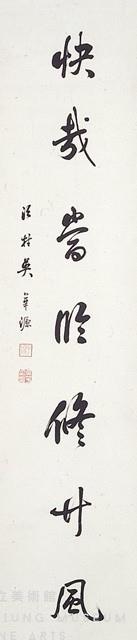 快哉當臨修竹風
村吳源
立美術館
IUNG MUSEUM
INE ARTS